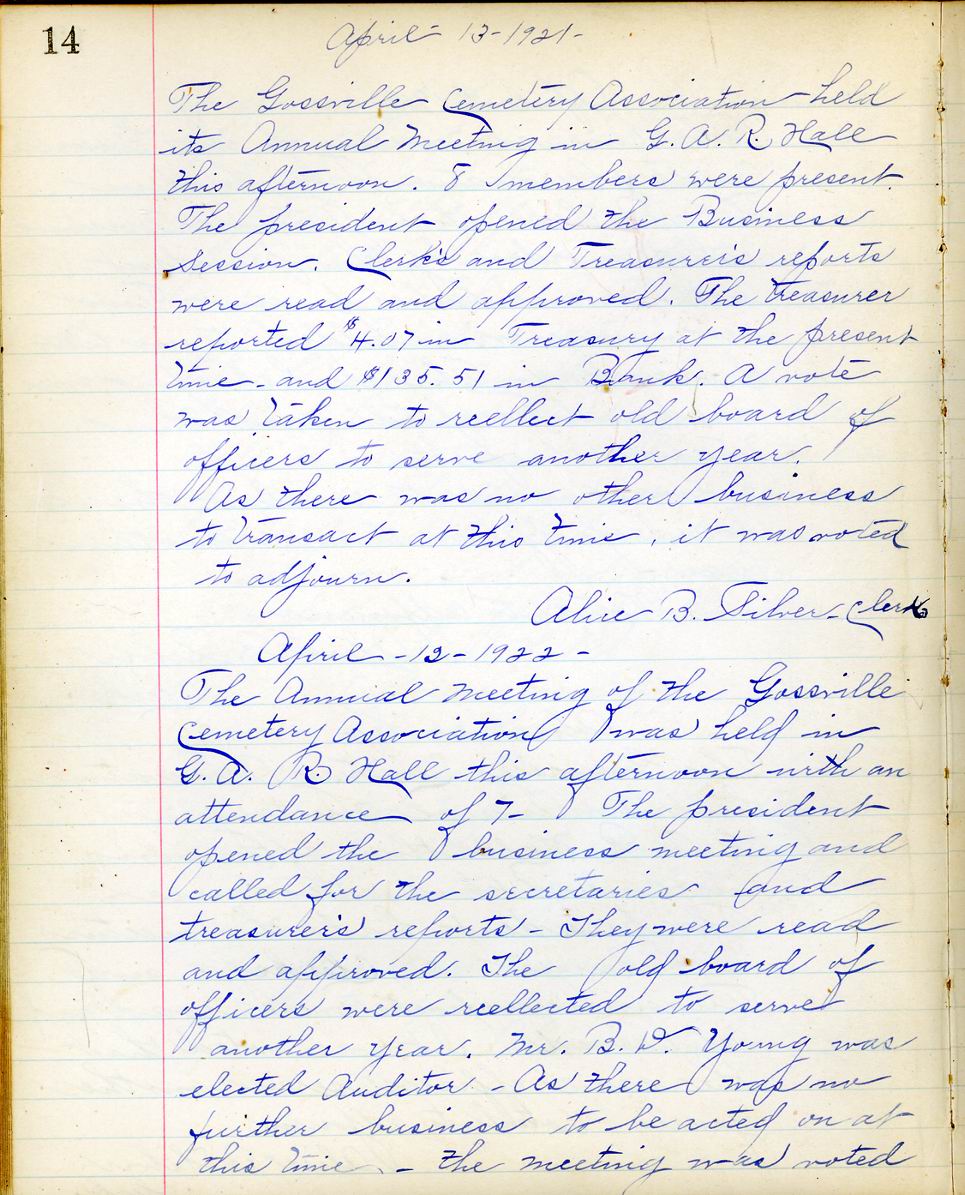 14
April 13-1921-
The Gossville Cemetery Association held
its Annual Meeting in G. A. R. Hall
this afternoon. 8 members were present.
The president opened the Business
Session. Clerk's and Treasurer's reports
were read and approved. The treasurer
reported $4.07 in Treasury at the present
time - and $135.51 in Bank. A vote
was taken to reellect old board of
officers to serve another year.
As there was no other business
to transact at this time, it was voted
to adjourn.
Alice B. Silver - Clerk
April - 12 - 1922 -
The Annual meeting of the Gossville
Cemetery Association was held in
G. A. R. Hall this afternoon with an
attendance of 7- The president
opened the business meeting and
called for the secretaries and
treasurer's reports - They were read
and approved. The old board of
officers were reellected to serve
another year. Mr. B. D. Young was
elected Auditor - As there was no
further business to be acted on at
this time, - the meeting was voted